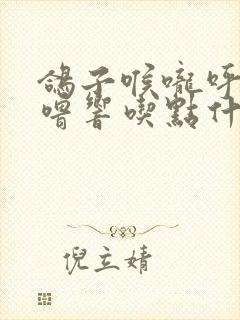 鴿子喉嚨呼
嚕響喫點什
倪立婧